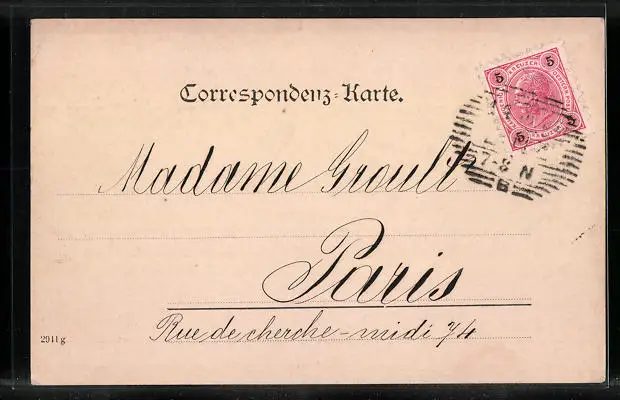 Correspondenz-Karte.
5 KREUZER 5
5
7-8 N
B
Madame Groult
Paris
Rue de cherche-midi 74
2941g